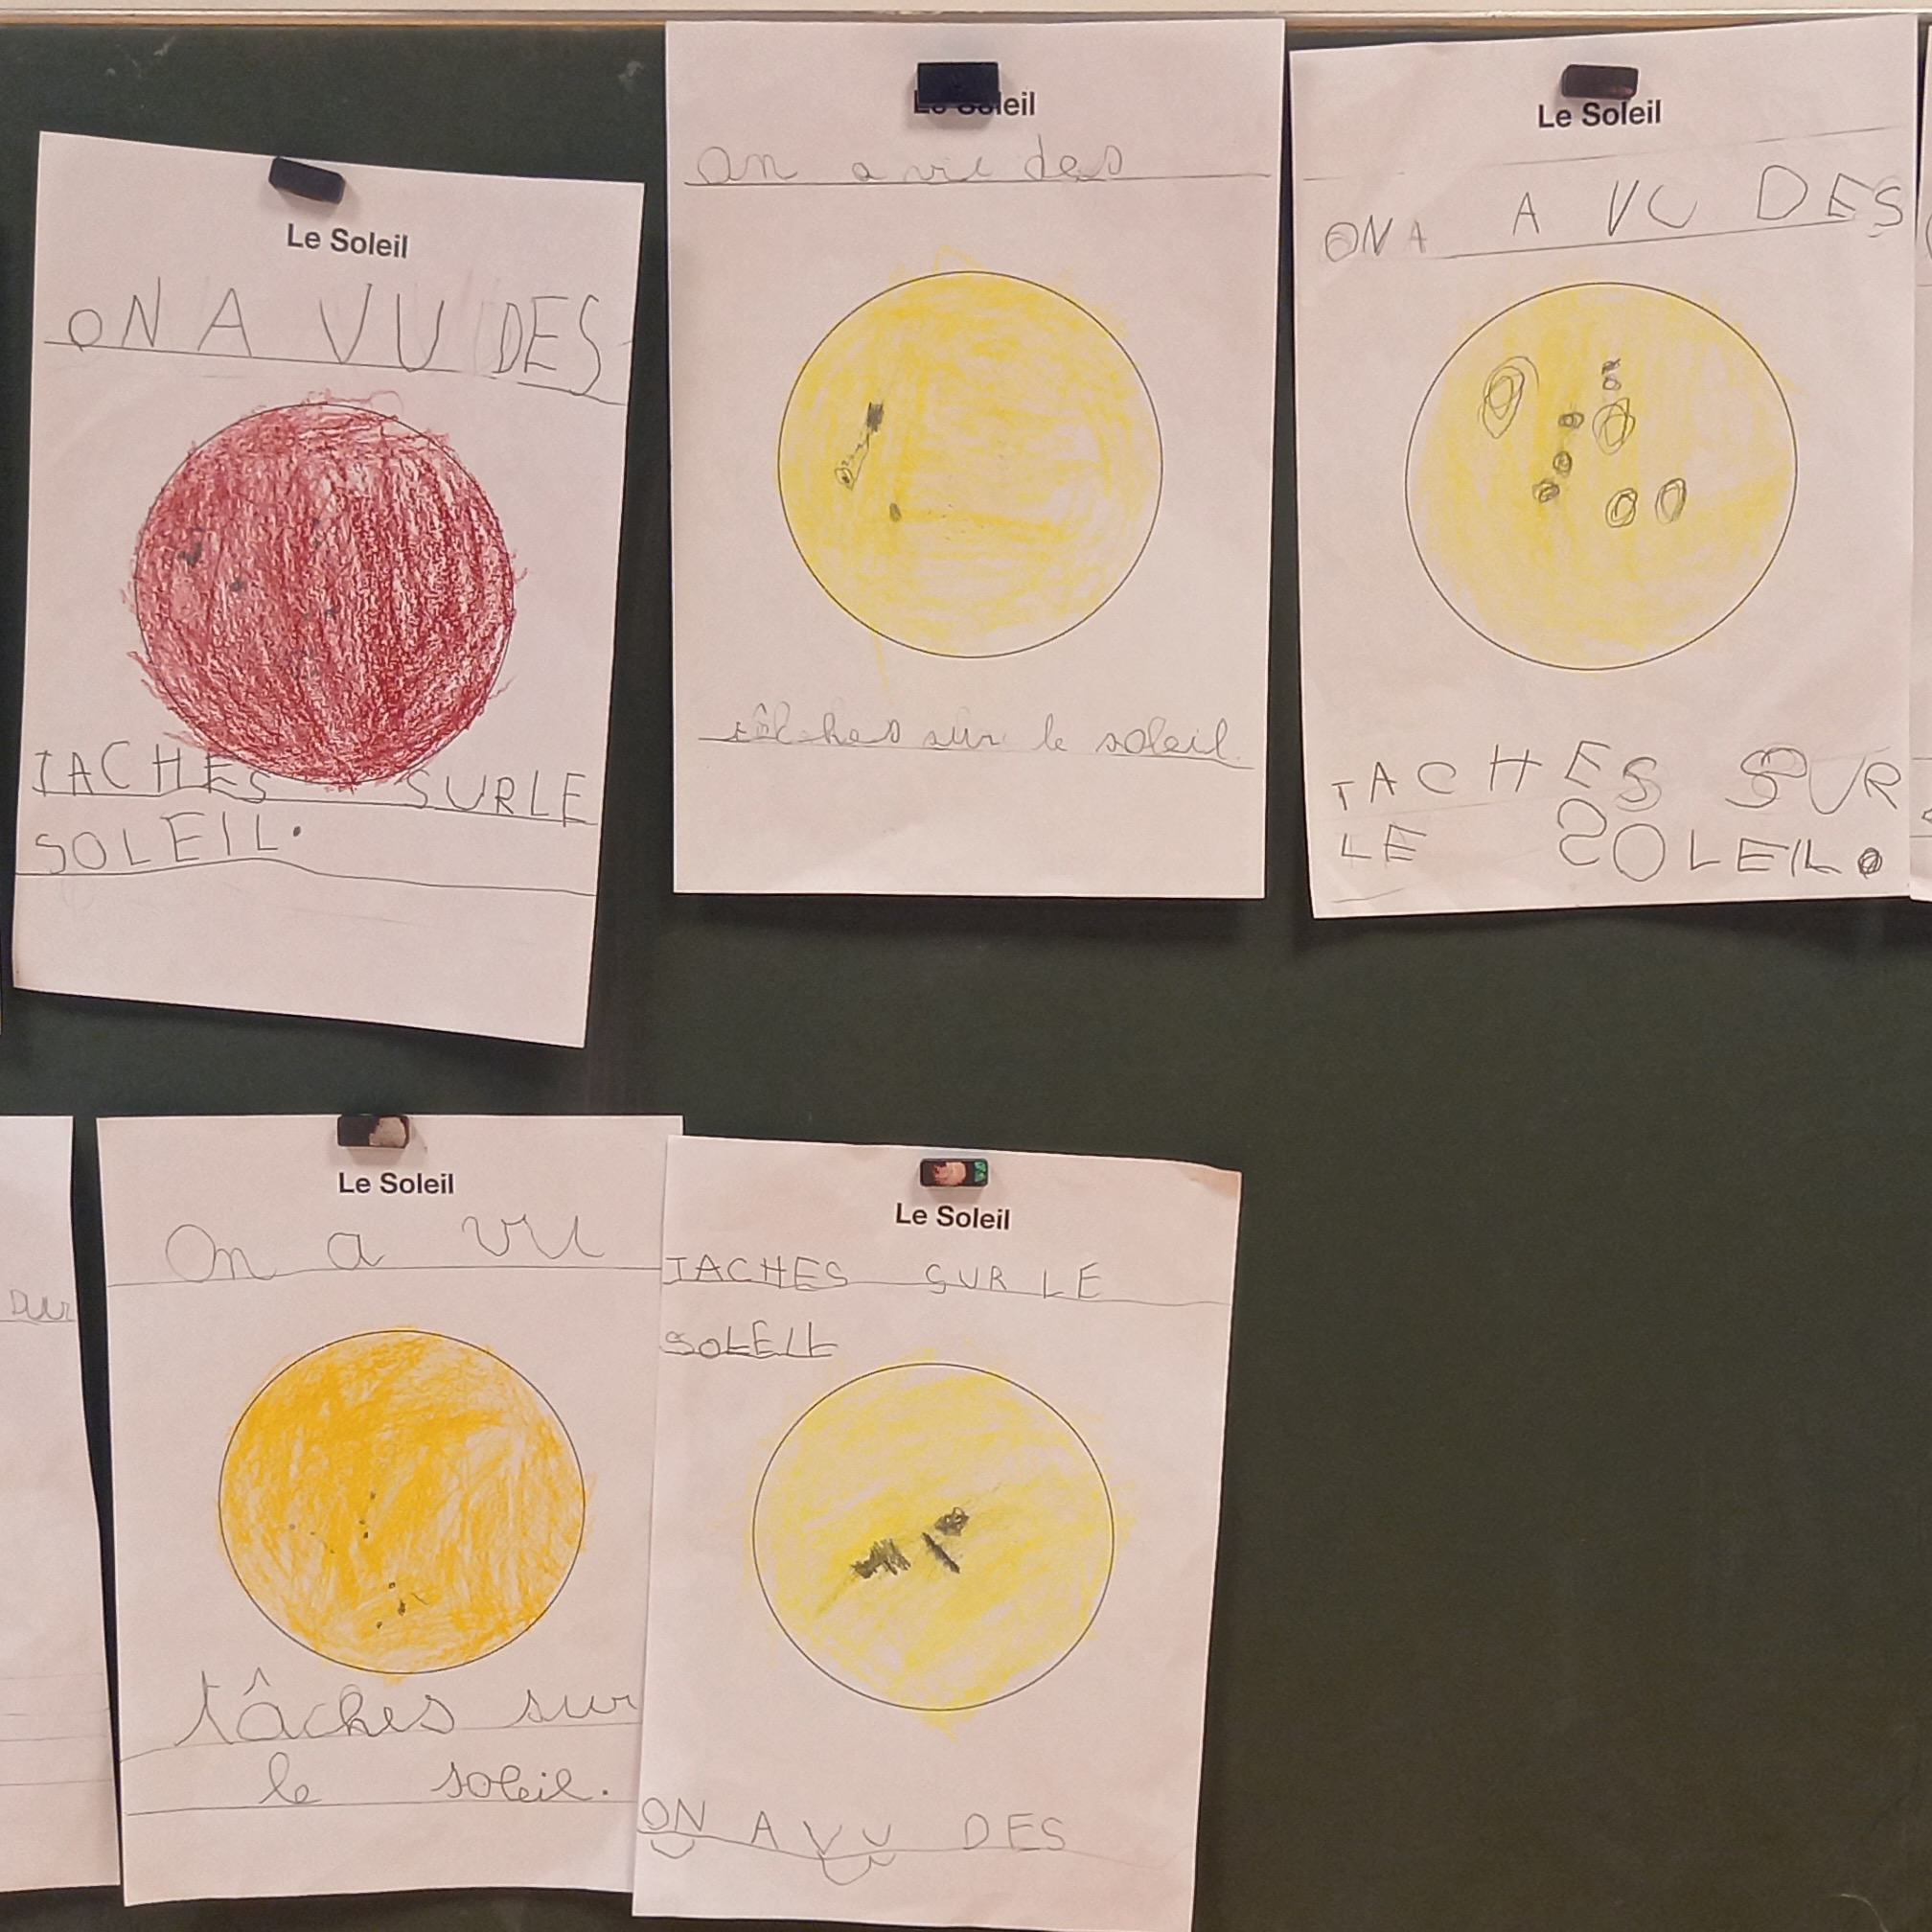 Le Soleil
ON A VU DES
TACHES SUR LE
SOLEIL.
Le Soleil
on a vu des
tâches sur le soleil.
Le Soleil
ON A A VU DES
TACHES SUR
LE SOLEIL.
sur
Le Soleil
On a vu
tâches sur
le soleil.
Le Soleil
TACHES SUR LE
SOLEIL
ON A VU DES